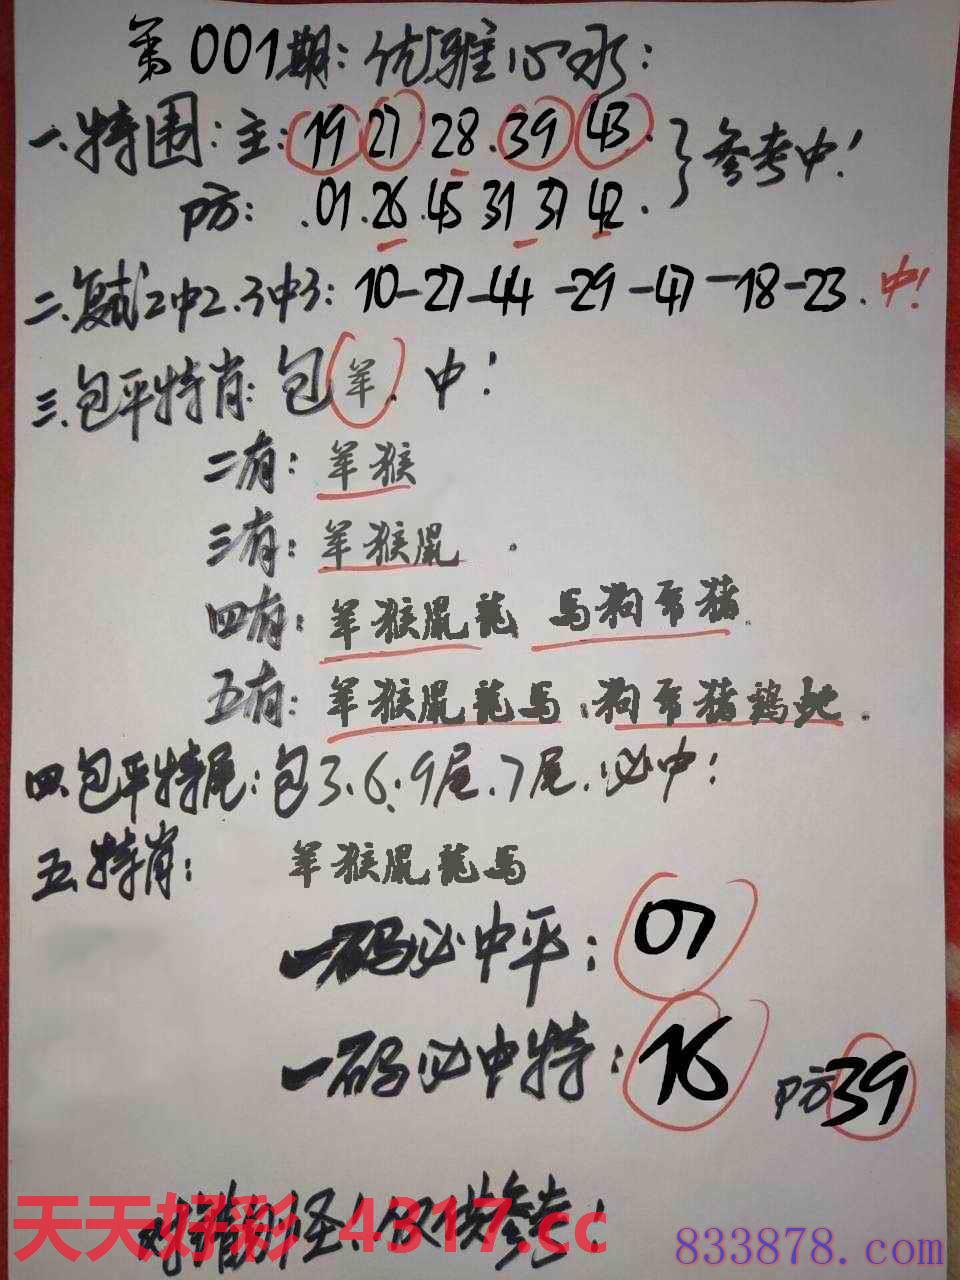 第001期：优雅心水：
一.特围：主：19 27 28.39 43.}参考中！
防：.01.26.45 31 37 42.
二.复试2中2.3中3：10-27-44-29-47-18-23.中！
三.包平特肖：包羊.中！
二有：羊猴
三有：羊猴鼠.
四有：羊猴鼠龍 馬狗兔猪.
五有：羊猴鼠龍馬.狗兔猪鷄蛇.
四.包平特尾：包3.6.9尾.7尾.必中！
五.特肖：羊猴鼠龍馬
一码必中平：07
一码必中特：16 防39
对错勿怪！仅供参考！
天天好彩 4317.cc
833878.com